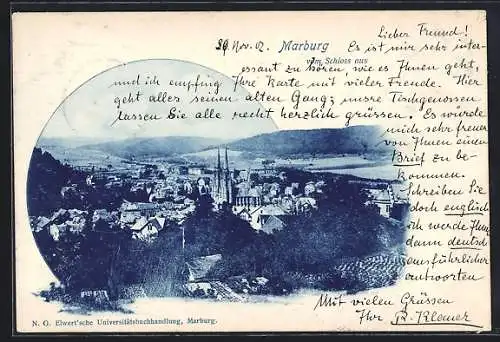 29. Nov. 02.
Marburg
vom Schloss aus
Lieber Freund!
Es ist mir sehr inter-
essant zu hören, wie es Ihnen geht,
und ich empfing Ihre Karte mit vieler Freude. Hier
geht alles seinen alten Gang; unsre Tischgenossen
lassen Sie alle recht herzlich grüssen. Es würde
mich sehr freuen
von Ihnen einen
Brief zu be-
kommen.
Schreiben Sie
doch englisch
ich werde Ihnen
dann deutsch
ausführlicher
antworten
Mit vielen Grüssen
Ihr Klemer
N. G. Elwert'sche Universitätsbuchhandlung, Marburg.